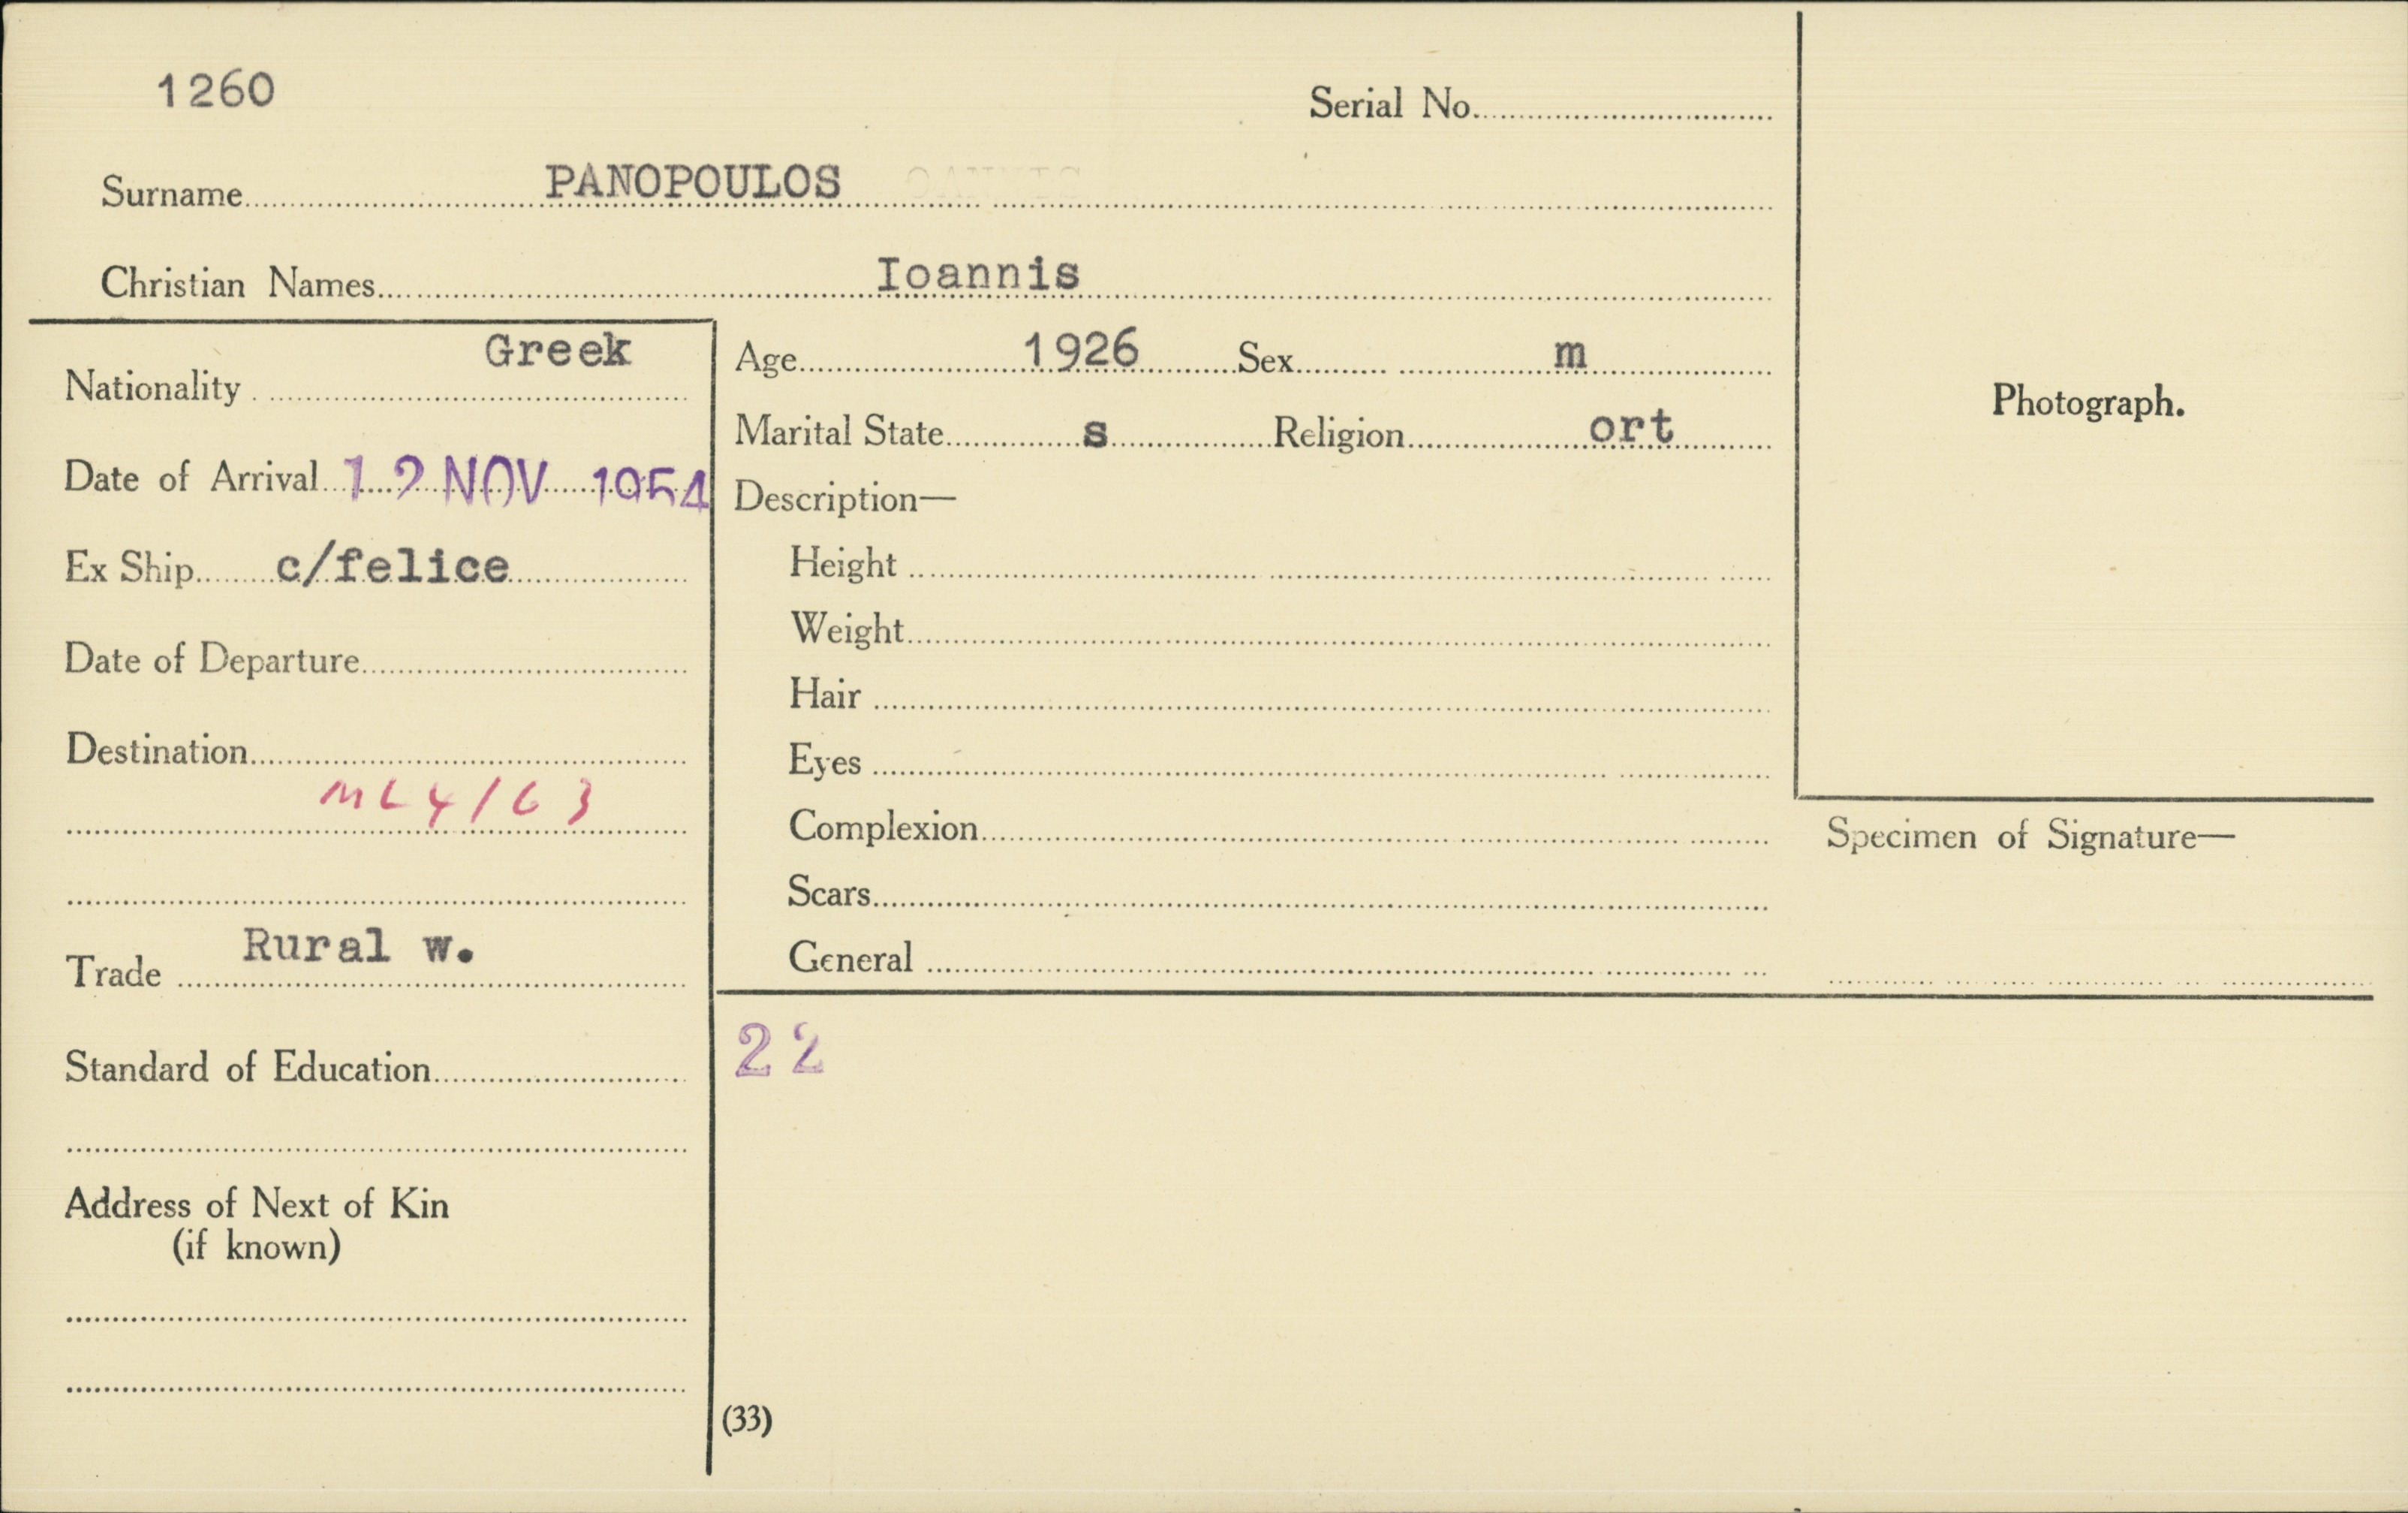 1260
Serial No.
Surname PANOPOULOS
Christian Names Ioannis
Nationality Greek
Date of Arrival 12 NOV 1954
Ex Ship c/felice
Date of Departure
Destination
ML 4/63
Trade Rural w.
Standard of Education
Address of Next of Kin
(if known)
Age 1926 Sex m
Marital State s Religion ort
Description—
Height
Weight
Hair
Eyes
Complexion
Scars
General
22
(33)
Photograph.
Specimen of Signature—